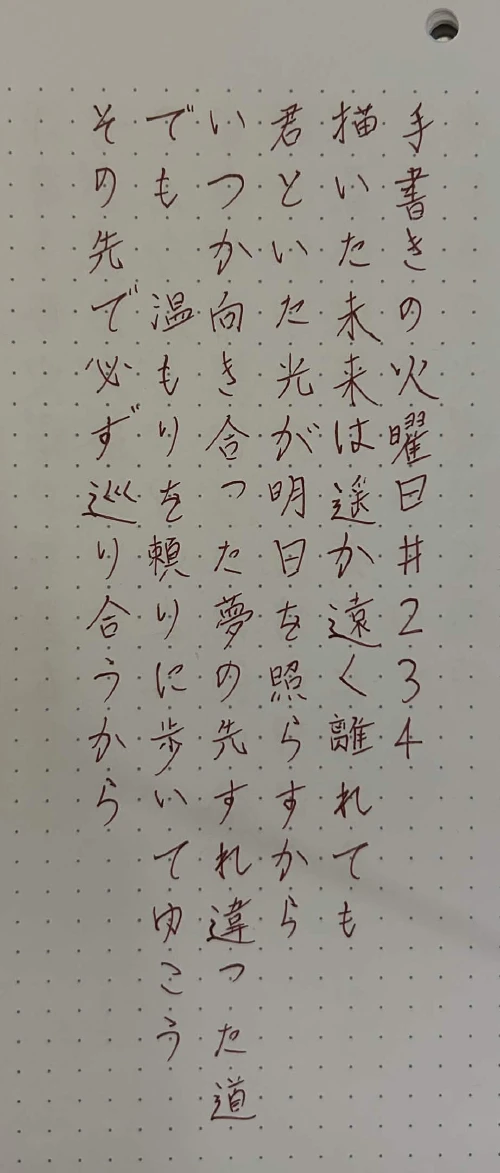 手書きの火曜日#234
描いた未来は遥か遠く離れても
君といた光が明日を照らすから
いつか向き合った夢の先すれ違った道
でも 温もりを頼りに歩いてゆこう
その先で必ず巡り合うから